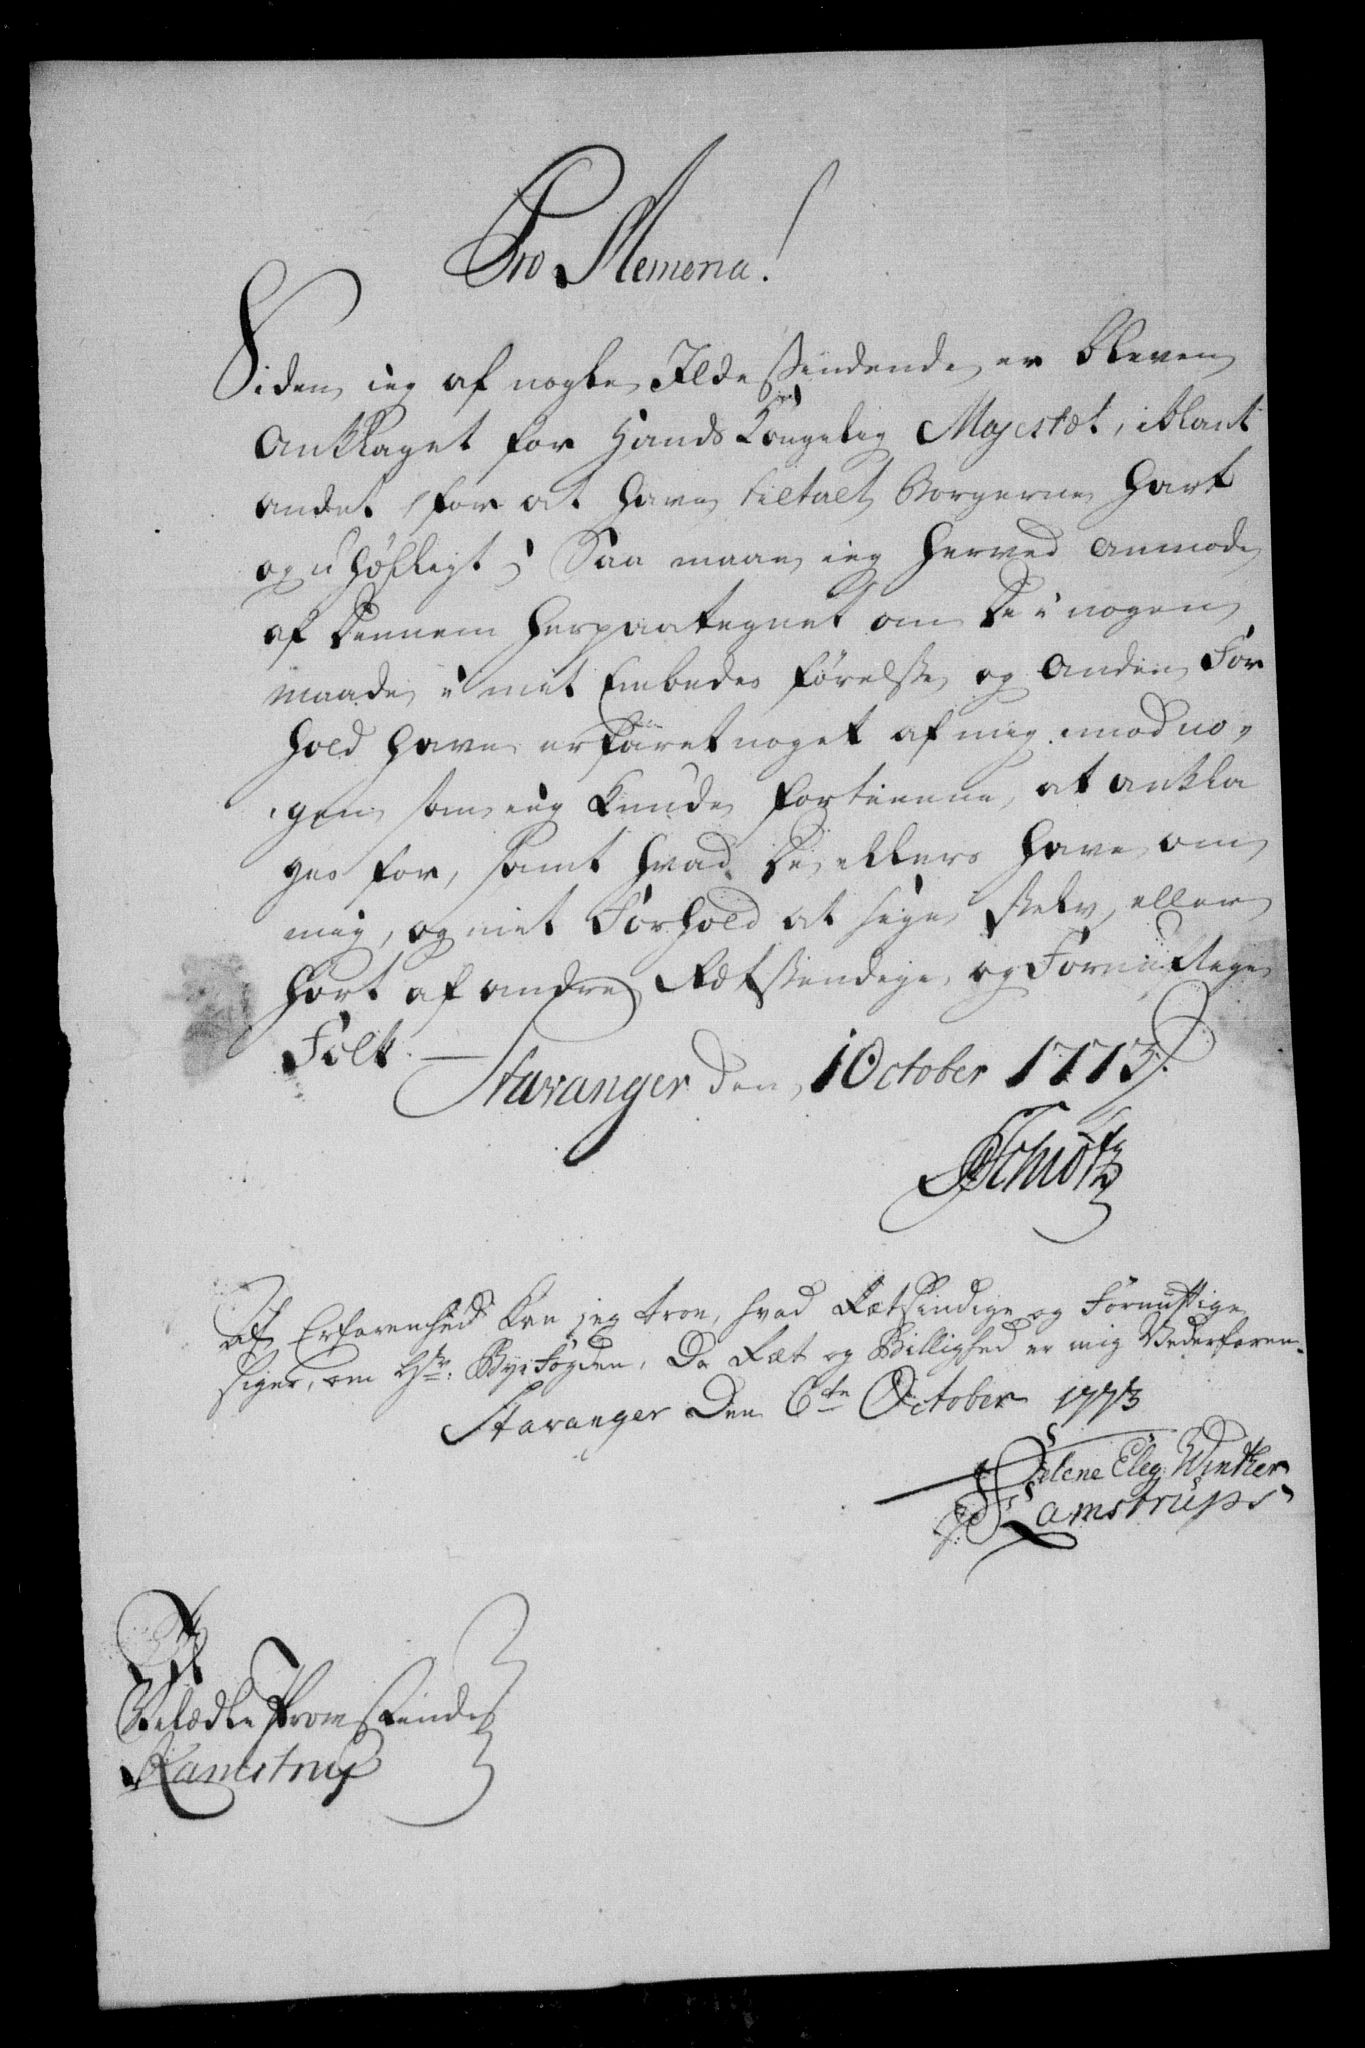 Pro Memoria!
Siden jeg af nogle Ildesindende er bleven
Anklaget for Hands Kongelig Majestæt, iblant
andet for at have tiltalt Borgerne hart
og uhöfligt; Saa maae jeg herved anmode
af Dennem herpaategnet om De i nogen
maade i mit Embedes förelse og Anden For
hold have erfaret noget af mig imod no-
gen som jeg kunde fortiene, at ankla
ges for, samt hvad De ellers have om
mig, og mit Forhold at sige selv, eller
hört af andre Rætsindige og Fornuftige
Folk. — Stavanger den 1 October 1773.
Schiötz
Af Erfarenhed kan jeg troe, hvad Rætsindige og Fornuftige
siger, om Hr: Bye Fogden, Da Ræt og Billighed er mig Vederfaren.
Stavanger Den 6te October 1773
Helene Eleg Winther
Sl: Ramstrups
Til
Velædle Frue
Ramstrup